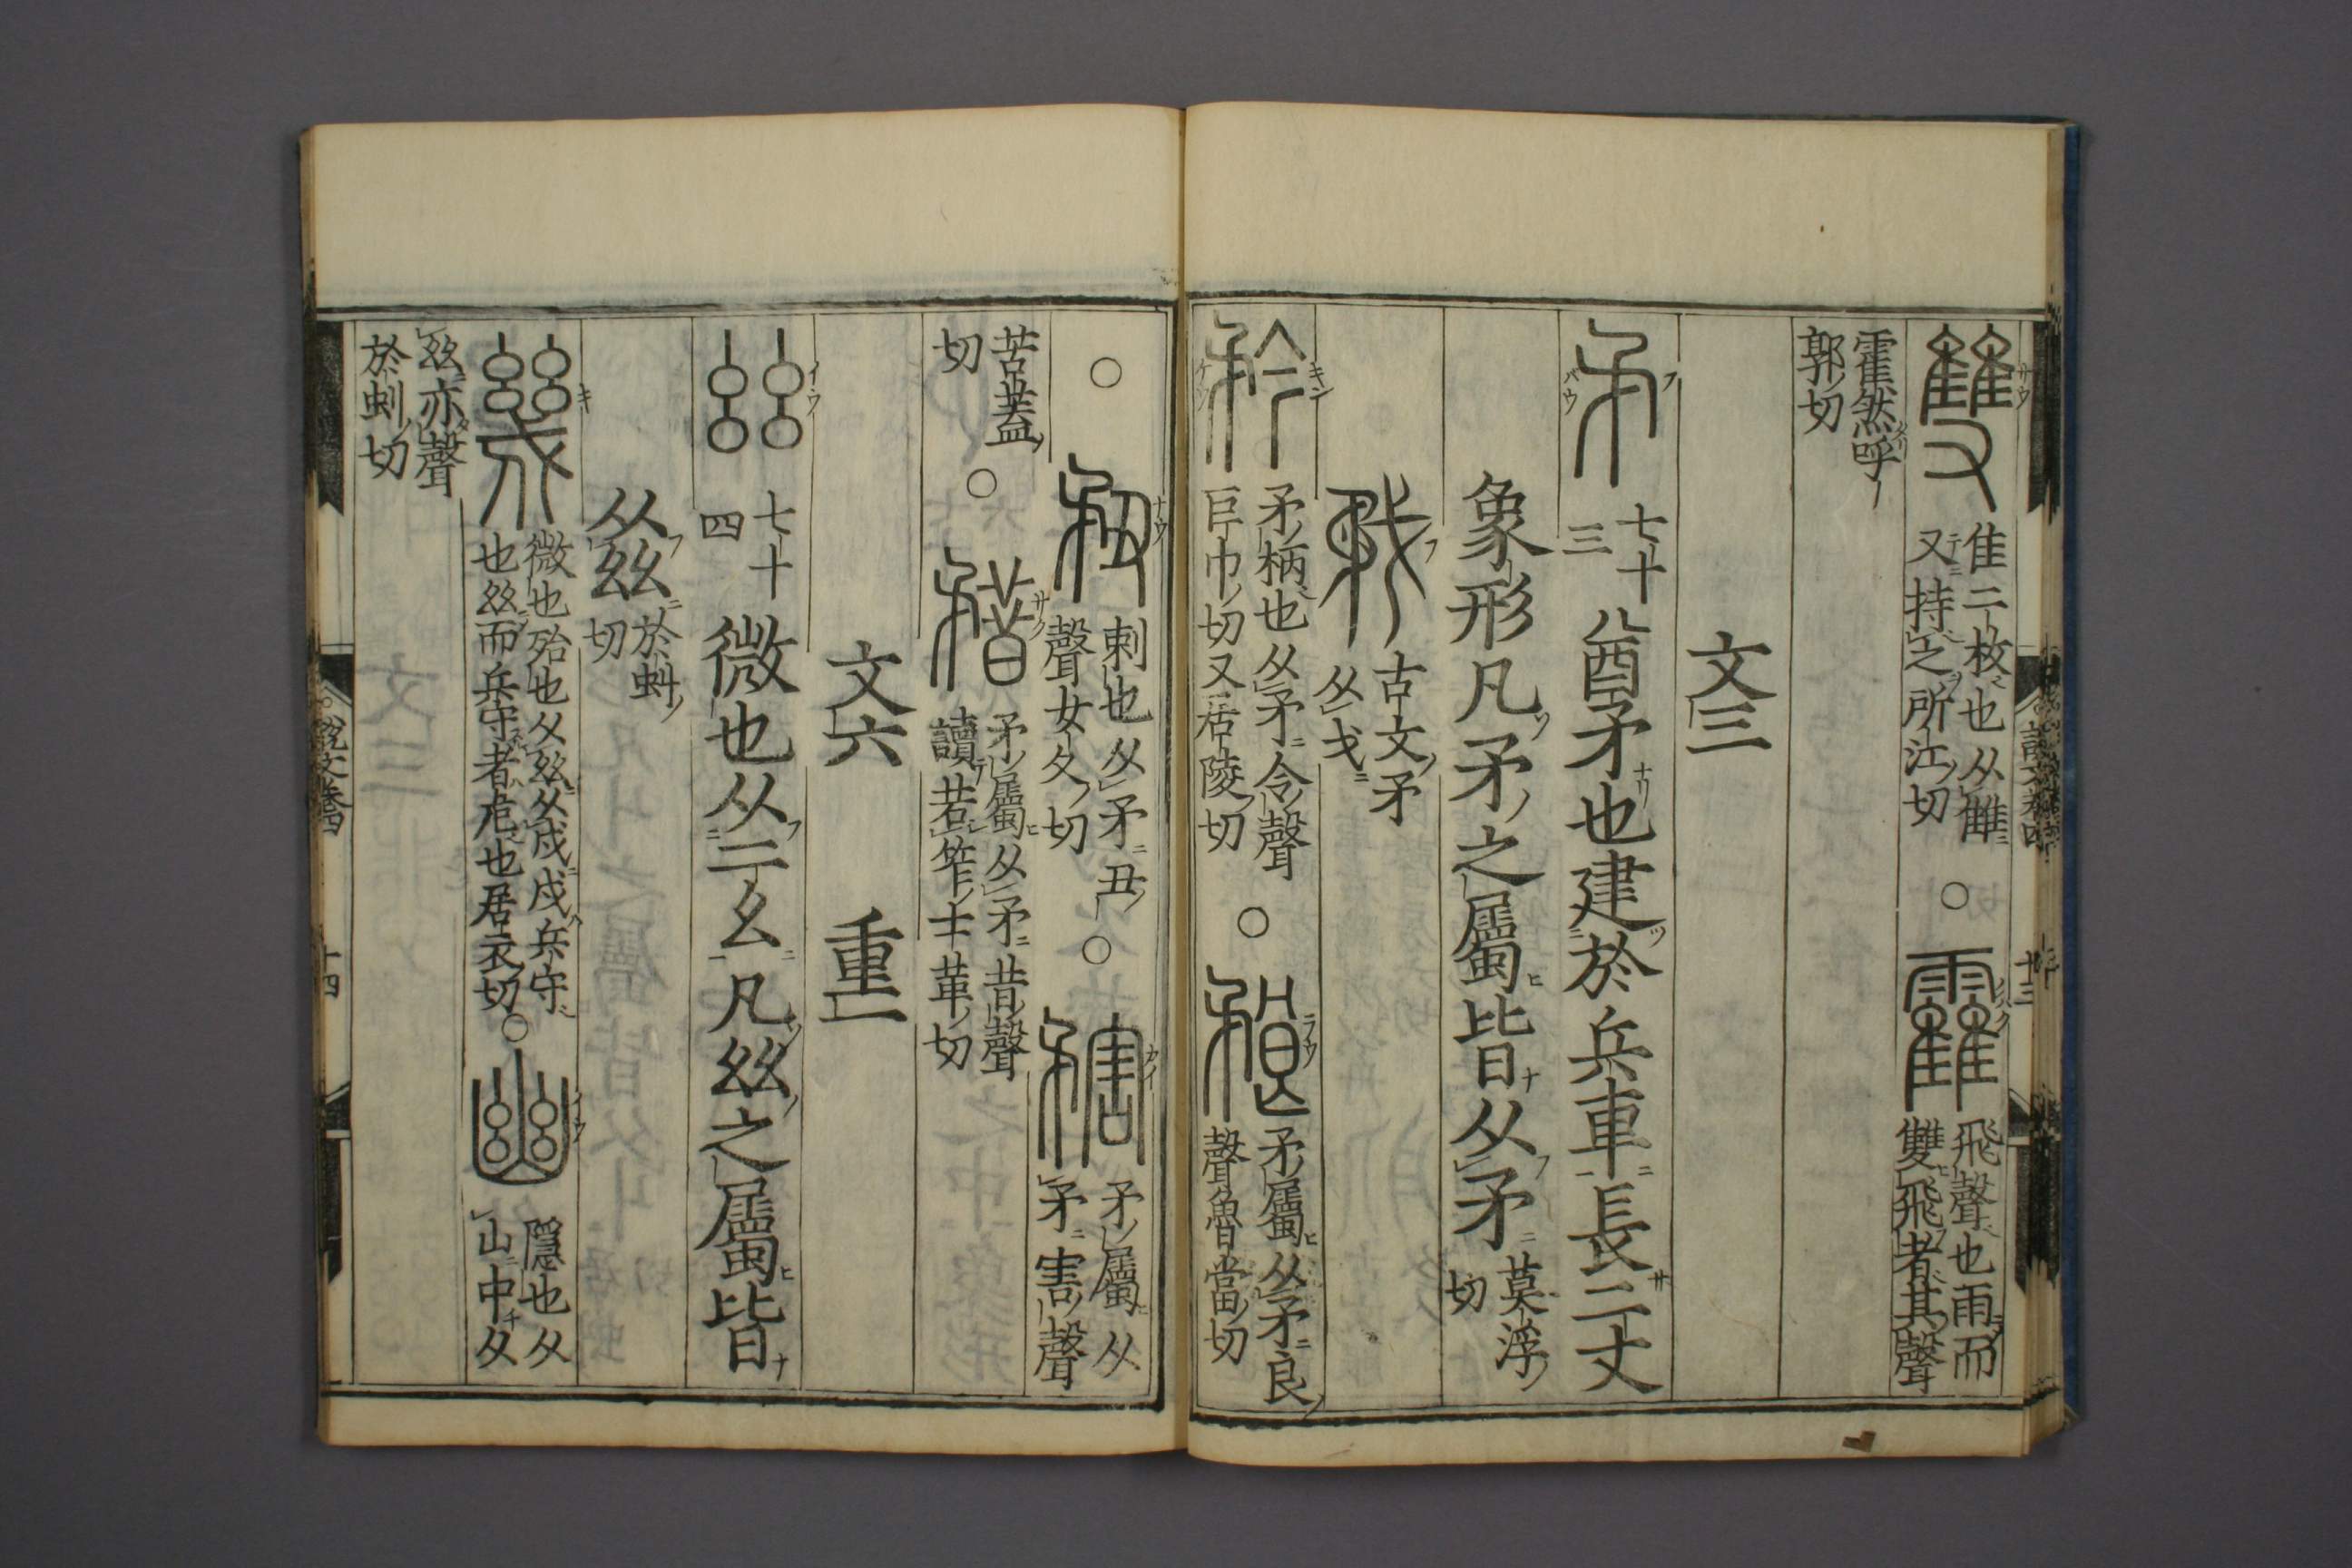 雙 隹二枚也从雔
又持之所江切
○ 靃 飛聲也雨而
雙飛者其聲
霍然呼
郭切
文三
矛 七十三 酋矛也建於兵車長二丈
象形凡矛之屬皆从矛 莫浮切
古文矛
从戈
矜 矛柄也从矛令聲
巨巾切又居陵切
○ 矛屬从矛良
聲魯當切
○ 刺也从矛丑
聲女久切
○ 矛屬从
矛害聲
苦蓋
切
○ 矠 矛屬从矛昔聲
讀若笮士革切
文六 重一
𢆶 七十四 微也从二幺凡𢆶之屬皆
从𢆶 於蚪切
幾 微也殆也从𢆶从戍戍兵守
也𢆶而兵守者危也居衣切
○ 幽 隱也从
山中从
𢆶亦聲
於虯切
說文卷四
十三
說文卷四
十四